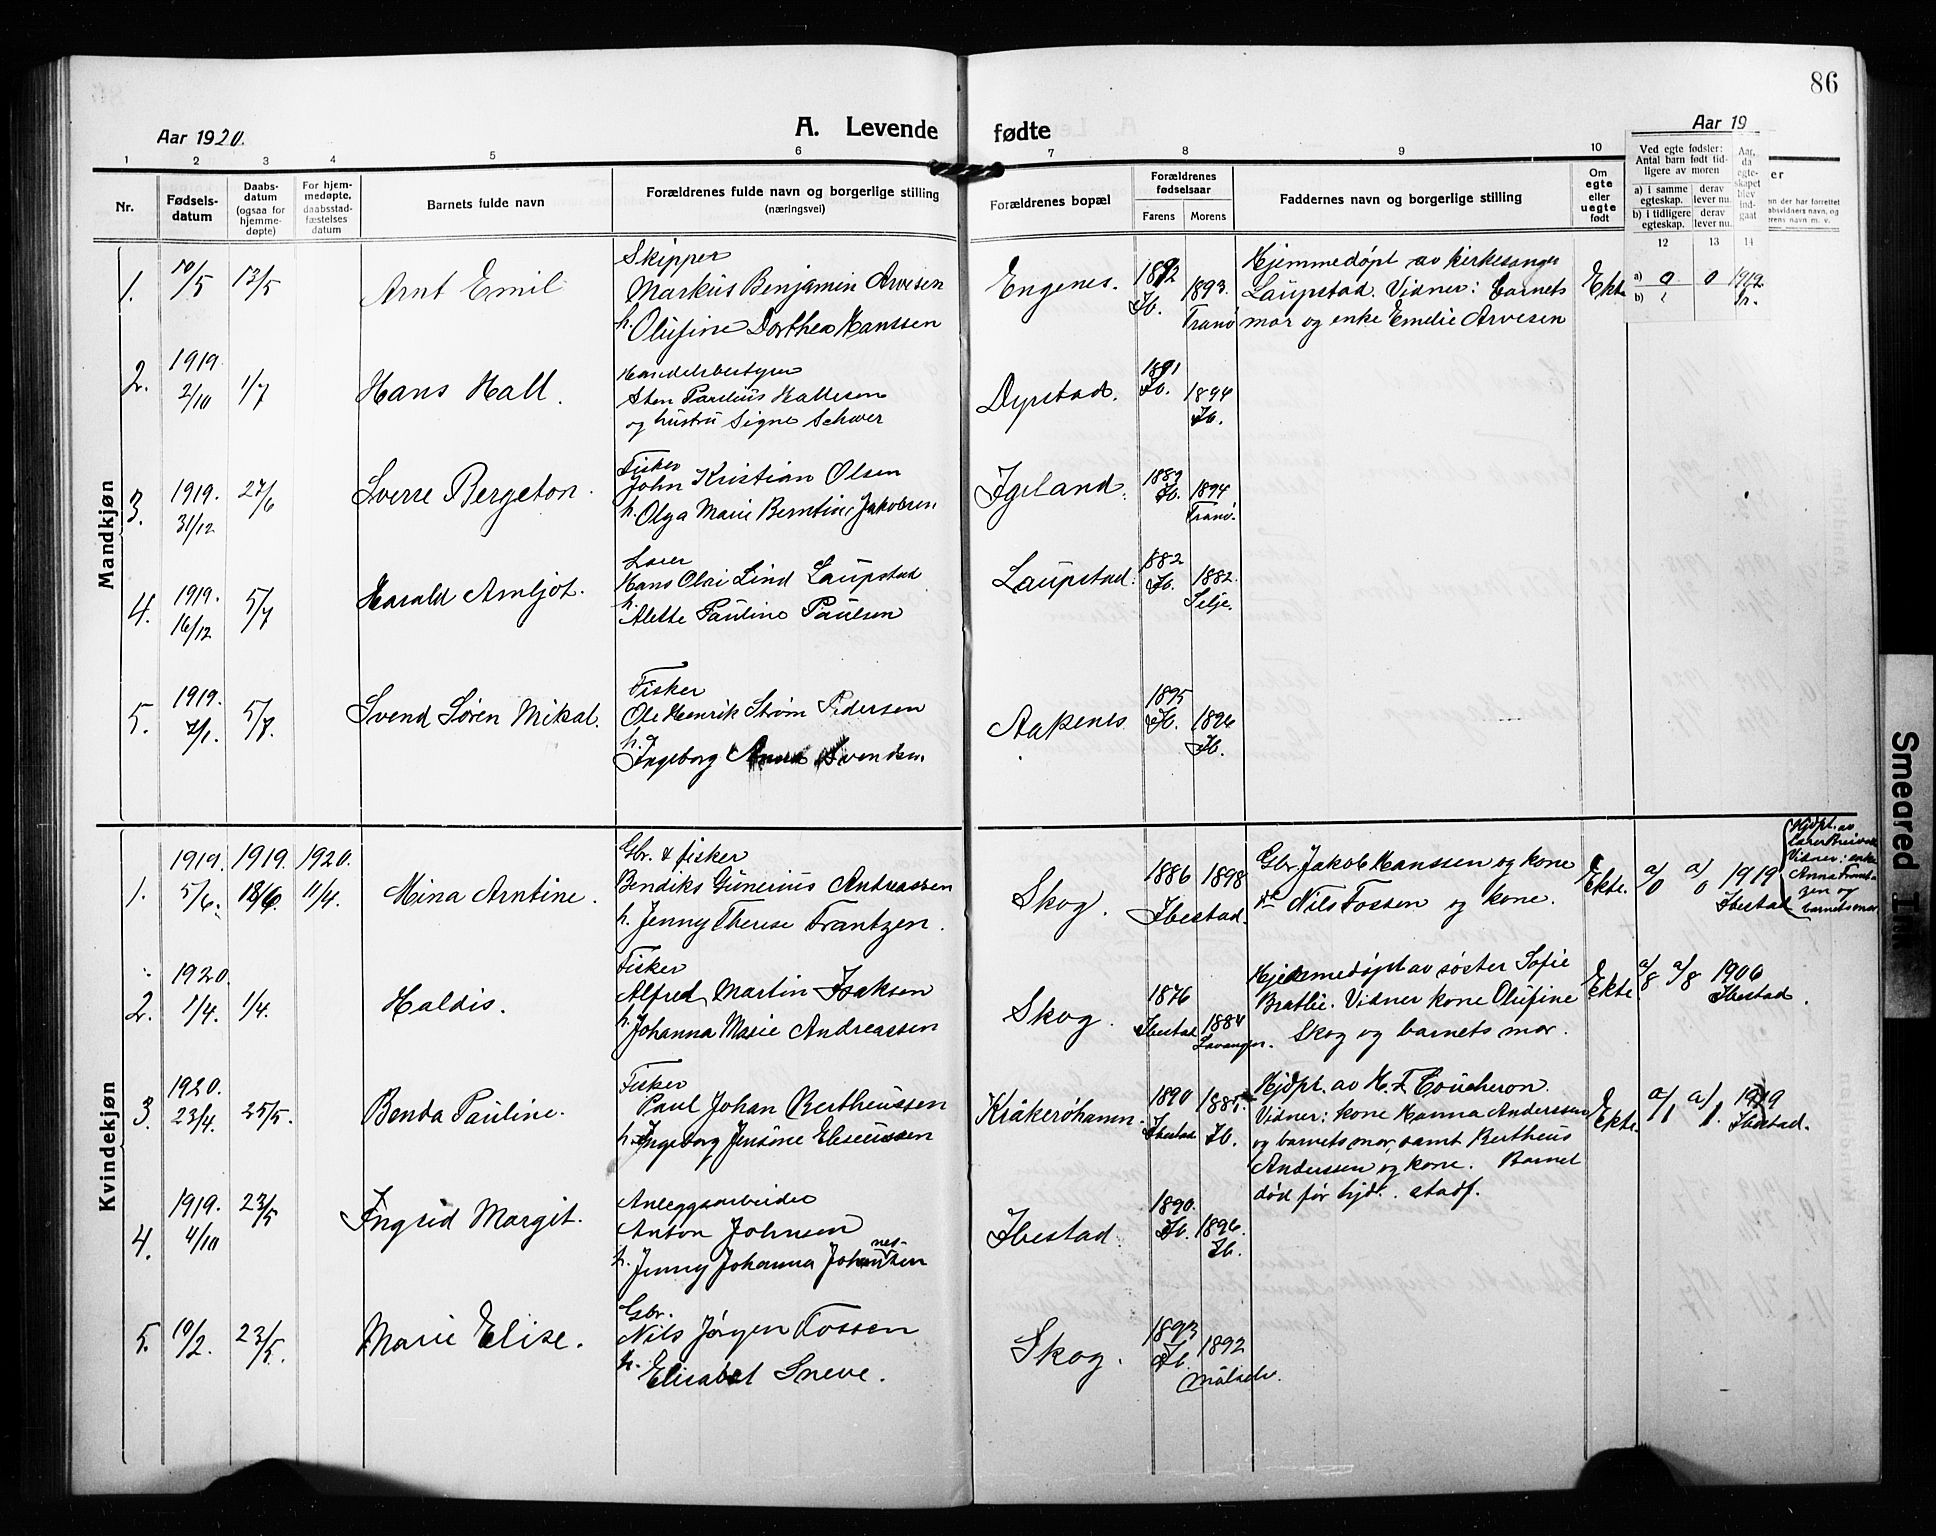 86
Aar 1920.
A. Levende fødte
Aar 19
1 2 3 4 5 6 7 8 9 10
Nr.
Fødsels-
datum
Daabs-
datum
(ogsaa for
hjemme-
døpte)
For hjem-
medøpte,
daabsstad-
fæstelses
datum
Barnets fulde navn
Forældrenes fulde navn og borgerlige stilling
(næringsvei)
Forældrenes bopæl
Forældrenes
fødselsaar
Farens Morens
Faddernes navn og borgerlige stilling
Om
egte
eller
uegte
født
Ved egte fødsler:
Antal barn født tid-
ligere av moren
a) i samme
egteskap.
derav
lever nu.
b) i tidligere
egteskap.
derav
lever nu.
Aar,
da
egte-
skapet
blev
ind-
gaat
12 13 14
Mandkjøn
1. 10/5 13/5
Arnt Emil
Skipper
Markus Benjamin Arvesen
h. Olufine Dorthea Hanssen
Engenes.
1892
Ib.
1893.
Tranø
Hjemmedøpt av kirkesanger
Laupstad. Vidner: Barnets
mor og enke Emelie Arvesen
Ekte
a) 0 0 1919.
b)
2. 1919. 2/10 1/7
Hans Hall.
Handelsbestyrer
Sten Parelius Hallesen
og hustru Signe Schwer
Dyrstad.
1891
Ib.
1894
Ib.
3. 1919. 31/12 27/6
Sverre Bergeton.
Fisker
John Kristian Olsen
h. Olga Marie Berntine Jakobsen
Igeland.
1889
Ib.
1894
Tranø.
4. 1919. 16/12 5/7
Harald Arnljot.
Lærer
Hans Olai Lind Laupstad
h. Alette Pauline Paulsen
Laupstad.
1882
Ib.
1882.
Selje.
5. 1919. 5/7.
Svend Søren Mikal.
Fisker
Ole Henrik Strøm Pedersen
h.
Ingeborg Anna Svendsen.
Aakenes
1895
Ib.
1896
Ib.
Kvindekjøn
1. 1919. 5/6. 1919. 18/6 1920. 11/4.
Mina Arntine.
Gbr. & fisker
Bendiks Gunerius Andreassen
h. Jenny Therese Frantzen.
Skog.
1886 1898
Ibestad.
Gbr. Jakob Hanssen og kone
Nils Fossen og kone.
Ekte. a/0 a/0 1919
Ibestad
Hjdpt. av
Vidner: enke
Anna Frantzen og
barnets mor
2. 1920. 1/4. 1/4.
Haldis.
Fisker
Alfred Martin Isaksen
h. Johanna Marie Andreassen
Skog.
1876
Ibestad
1884
Lavangen.
Hjemmedøpt av søster Sofie
Bratlie. Vidner kone Olufine
Skog og barnets mor.
Ekte. a/8 a/8 1906
Ibestad.
3. 1920. 23/4. 25/5.
Benda Pauline.
Fisker
Paul Johan Bertheussen
h. Ingeborg Jensine Eliseussen
Kråkerøhamn.
1890
Ibestad
1885
Ib.
Hjdpt. av H. F. Coucheron.
Vidner: kone Hanna Anderssen
og barnets mor, samt Bertheus
Anderssen og kone. Barnet
død før hjd.. stadf.
Ekte. a/1 a/1. 1919
Ibestad.
4. 1919. 4/10 23/5
Ingrid Margit.
Anleggsarbeider
Anton Johnsen
h. Jenny Johanna Johannessen
Ibestad.
1890.
Ib.
1896.
Ib.
5. 10/2. 23/5.
Marie Elise.
Gbr.
Nils Jørgen Fossen
h. Elisabet Sneve.
Skog.
1893
Ib.
1892
Målselv.
Smeared Ink